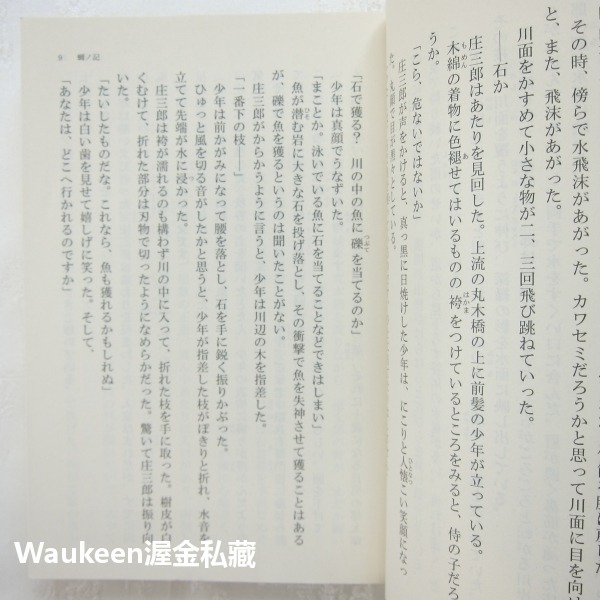 その時、傍らで水飛沫があがった。カワセミだろうかと思って川面に目を向け
と、また、飛沫があがった。
川面をかすめて小さな物が二、三回飛び跳ねていった。
――石か
庄三郎はあたりを見回した。上流の丸木橋の上に前髪の少年が立っている。
木綿の着物に色褪せてはいるものの袴をつけているところをみると、侍の子だろ
うか。
「こら、危ないではないか」
庄三郎が声をかけると、真っ黒に日焼けした少年は、にこりと人懐こい笑顔になっ
た。
9 蜩ノ記
「石で獲る? 川の中の魚に礫を当てるのか」
少年は真顔でうなずいた。
「まことか。泳いでいる魚に石を当てることなどできはしまい」
魚が潜む岩に大きな石を投げ落とし、その衝撃で魚を失神させて獲ることはある
が、礫で魚を獲るというのは聞いたことがない。
庄三郎がからかうように言うと、少年は川辺の木を指差した。
「一番下の枝――」
少年は前かがみになって腰を落とし、石を手に鋭く振りかぶった。
ひゅっと風を切る音がしたかと思うと、少年が指差した枝がぽきりと折れ、水音を
立てて先端が水に浸かった。
庄三郎は袴が濡れるのも構わず川の中に入って、折れた枝を手に取った。樹皮が白
くむけて、折れた部分は刃物で切ったようになめらかだった。驚いて庄三郎は振り向
いた。
「たいしたものだな。これなら、魚も獲れるかもしれぬ」
少年は白い歯を見せて嬉しげに笑った。そして、
「あなたは、どこへ行かれるのですか」
Waukeen渥金私藏